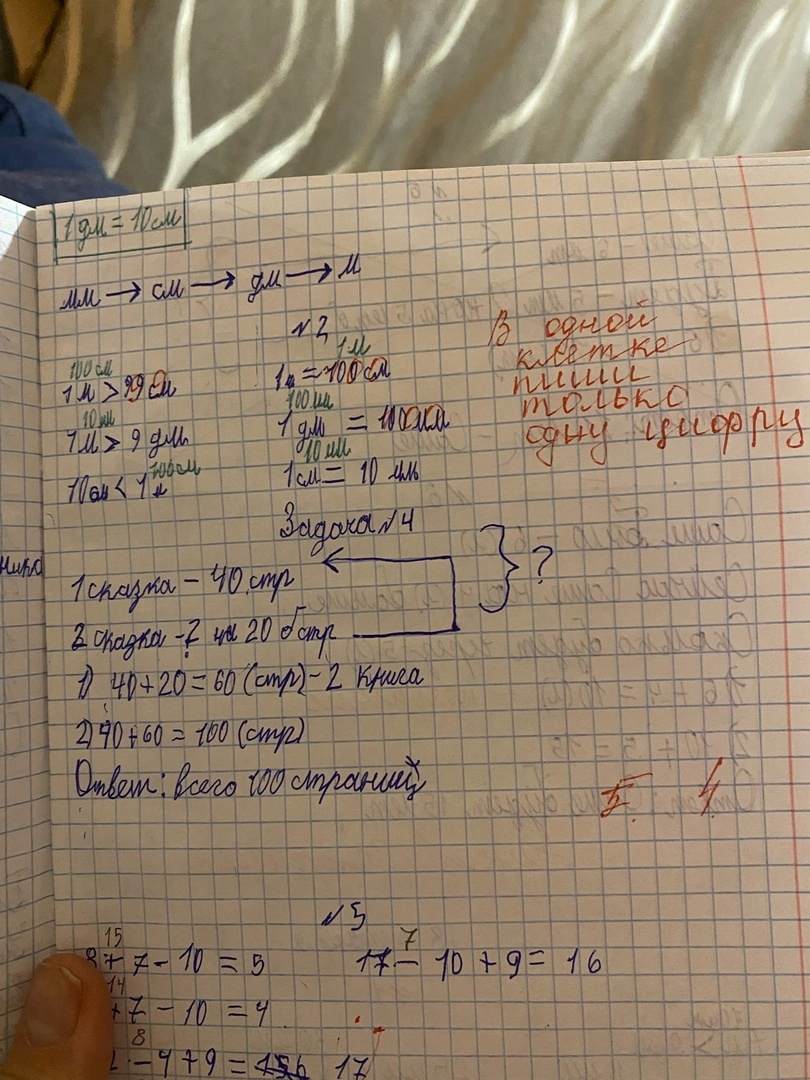 1 дм = 10 см
мм → см → дм → м
№2
В одной
клетке
пиши
только
одну цифру
100 см
1 м > 99 см
1 м
1 м = 100 см
10 дм
1 м > 9 дм
100 мм
1 дм = 100 мм
100 см
10 см < 1 м
10 мм
1 см = 10 мм
Задача №4
1 сказка – 40 стр
} ?
2 сказка – ? на 20 б стр
1) 40+20=60 (стр) – 2 книга
2) 40+60=100 (стр)
Ответ: всего 100 страниц
№5
15
8+7-10=5
7
17-10+9=16
14
+7-10=4
8
-4+9= 17